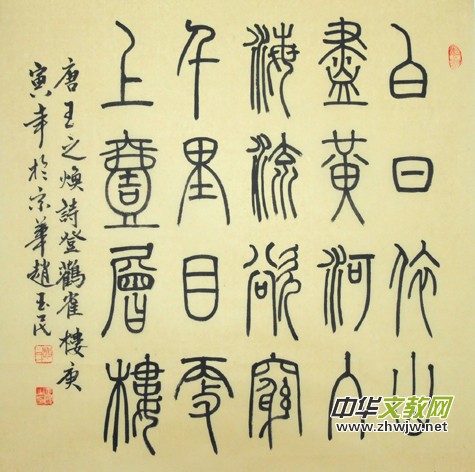 白日依山
盡黃河入
海流欲窮
千里目更
上壹層樓
唐王之煥詩登鸛雀樓庚
寅年於京華趙玉民
中华文教网
www.zhwjw.net